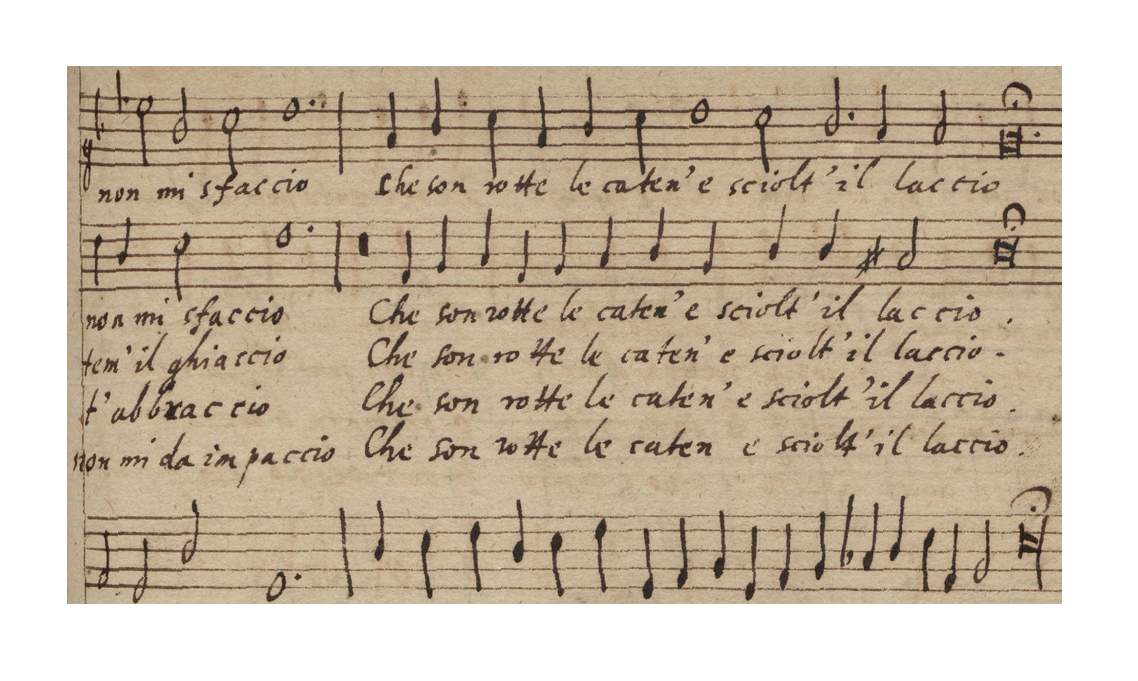 non mi sfaccio Che son rotte le caten' e sciolt' il laccio
non mi sfaccio Che son rotte le caten' e sciolt' il laccio .
tem' il ghiaccio Che son rotte le caten' e sciolt' il laccio .
t' abbraccio Che son rotte le caten' e sciolt' il laccio .
non mi da impaccio Che son rotte le caten e sciolt' il laccio .